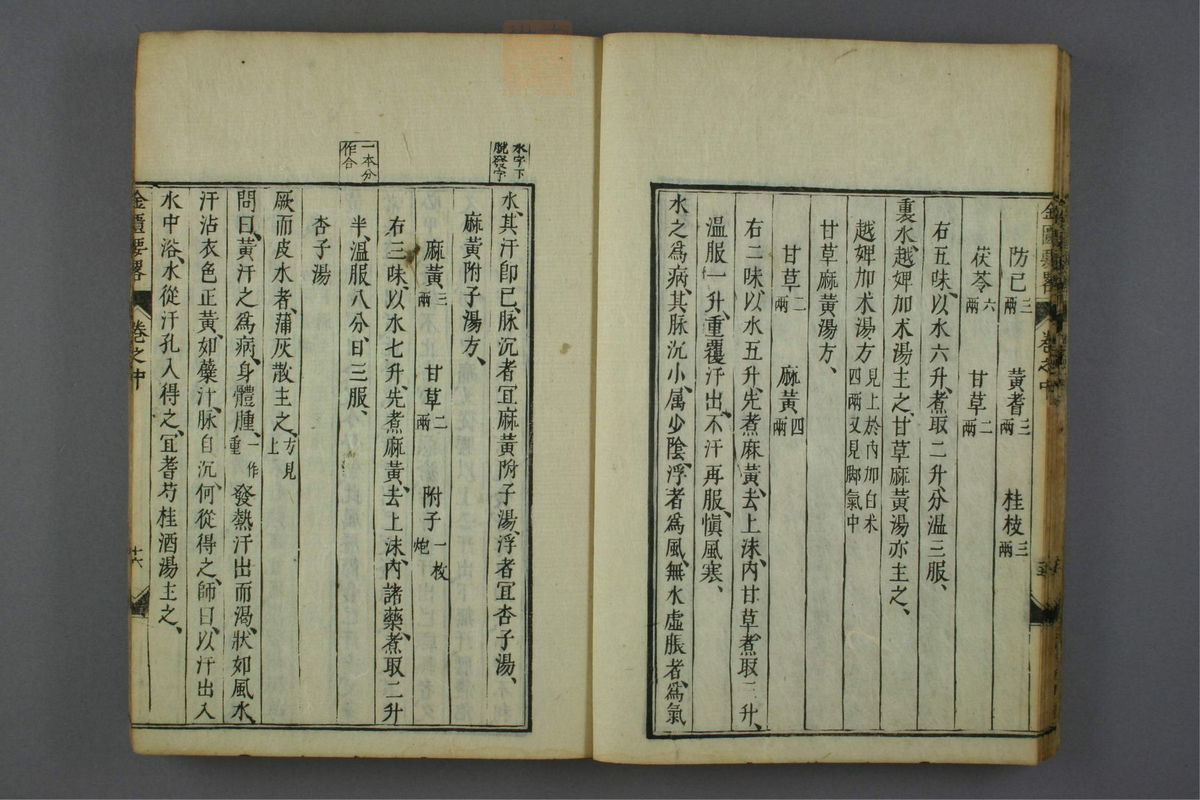 防己三兩　黃耆三兩　桂枝三兩
茯苓六兩　甘草二兩
右五味、以水六升、煮取二升、分溫三服、
裏水、越婢加朮湯主之、甘草麻黃湯亦主之、
越婢加朮湯方 見上於內加白朮四兩又見脚氣中
甘草麻黃湯方、
甘草二兩　麻黃四兩
右二味、以水五升、先煮麻黃、去上沫、內甘草、煮取三升、
溫服一升、重覆汗出、不汗再服、愼風寒、
水之爲病、其脉沉小、属少陰、浮者爲風、無水虛脹者、爲氣
金匱要畧
卷之中
水字下脫發字
水、其汗即已、脉沉者宜麻黃附子湯、浮者宜杏子湯、
麻黃附子湯方、
麻黃三兩　甘草二兩　附子一枚炮
右三味、以水七升、先煮麻黃、去上沫、內諸藥、煮取二升
一本分作合
半、溫服八分、日三服、
杏子湯
厥而皮水者、蒲灰散主之、方見上
問曰、黃汗之爲病、身體腫、一作重 發熱汗出而渴、狀如風水、
汗沾衣色正黃、如蘗汁、脉自沉、何從得之、師曰、以汗出入
水中浴、水從汗孔入得之、宜耆芍桂酒湯主之、
金匱要畧
卷之中
十六